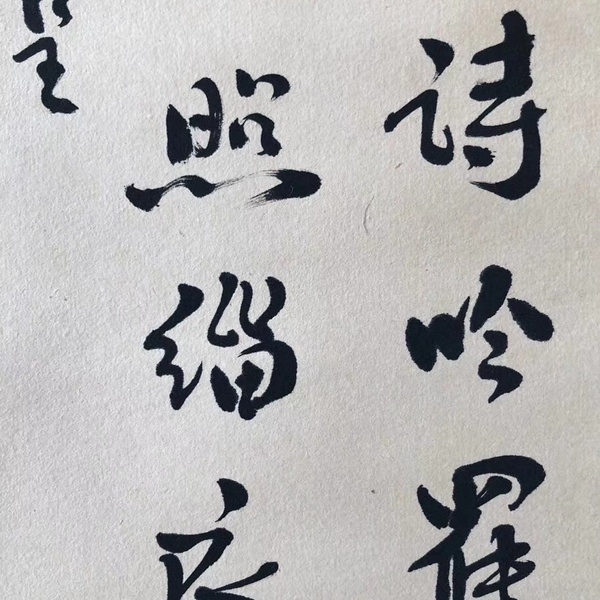 诗吟罷
照缁衣